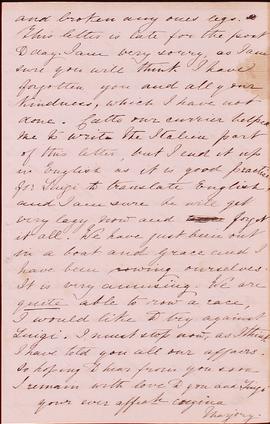 and broken any ones legs.
This letter is late for the post
to day. I am very sorry, as I am
sure you will think I have
forgotten you and all your
kindness, which I have not
done. our currier helped
me to write the Italian part
of this letter, but I end it up
in English as it is good practice
for Luigi to translate English
and I am sure he will get
very lazy now and forget
it all. We have just been out
in a boat and Grace and I
have been rowing ourselves.
It is very amusing. We are
quite able to row a race,
I would like to try against
Luigi. I must stop now, as I think
I have told you all our affairs.
So hoping to hear from you soon
I remain with love to you and Luigi
your ever affect cugina
Marjory.